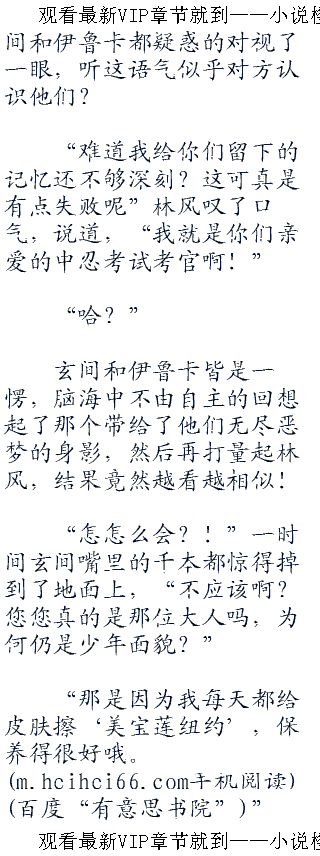 观看最新VIP章节就到——小说楼
间和伊鲁卡都疑惑的对视了
一眼，听这语气似乎对方认
识他们？
“难道我给你们留下的
记忆还不够深刻？这可真是
有点失败呢”林风叹了口
气，说道，“我就是你们亲
爱的中忍考试考官啊！”
“哈？”
玄间和伊鲁卡皆是一
愣，脑海中不由自主的回想
起了那个带给了他们无尽恶
梦的身影，然后再打量起林
风，结果竟然越看越相似！
“怎怎么会？！”一时
间玄间嘴里的千本都惊得掉
到了地面上，“不应该啊？
您您真的是那位大人吗，为
何仍是少年面貌？”
“那是因为我每天都给
皮肤擦‘美宝莲纽约’，保
养得很好哦。
(m.hcihci66.com手机阅读)
(百度“有意思书院”)”
观看最新VIP章节就到——小说